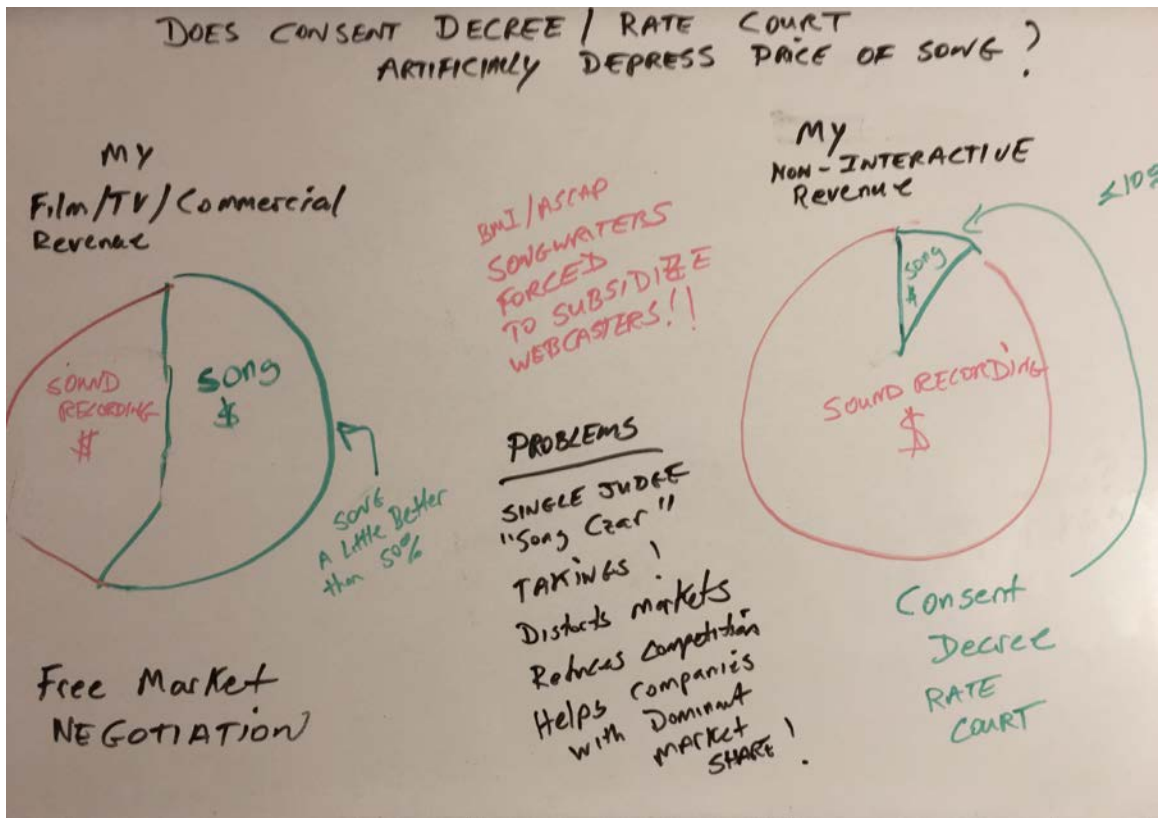 DOES CONSENT DECREE / RATE COURT
ARTIFICIALLY DEPRESS PRICE OF SONG ?
MY
Film/TV/Commercial
Revenue
SOUND
RECORDING
$
SONG
$
SONG
A Little Better
than 50%
Free Market
NEGOTIATION
BMI/ASCAP
SONGWRITERS
FORCED
TO SUBSIDIZE
WEBCASTERS!!
PROBLEMS
SINGLE JUDGE
"Song Czar"
TAKINGS!
Distorts Markets
Reduces Competition
Helps Companies
with Dominant
MARKET
SHARE!
MY
NON-INTERACTIVE
Revenue
≤10%
SONG
$
SOUND RECORDING
$
Consent
Decree
RATE
COURT